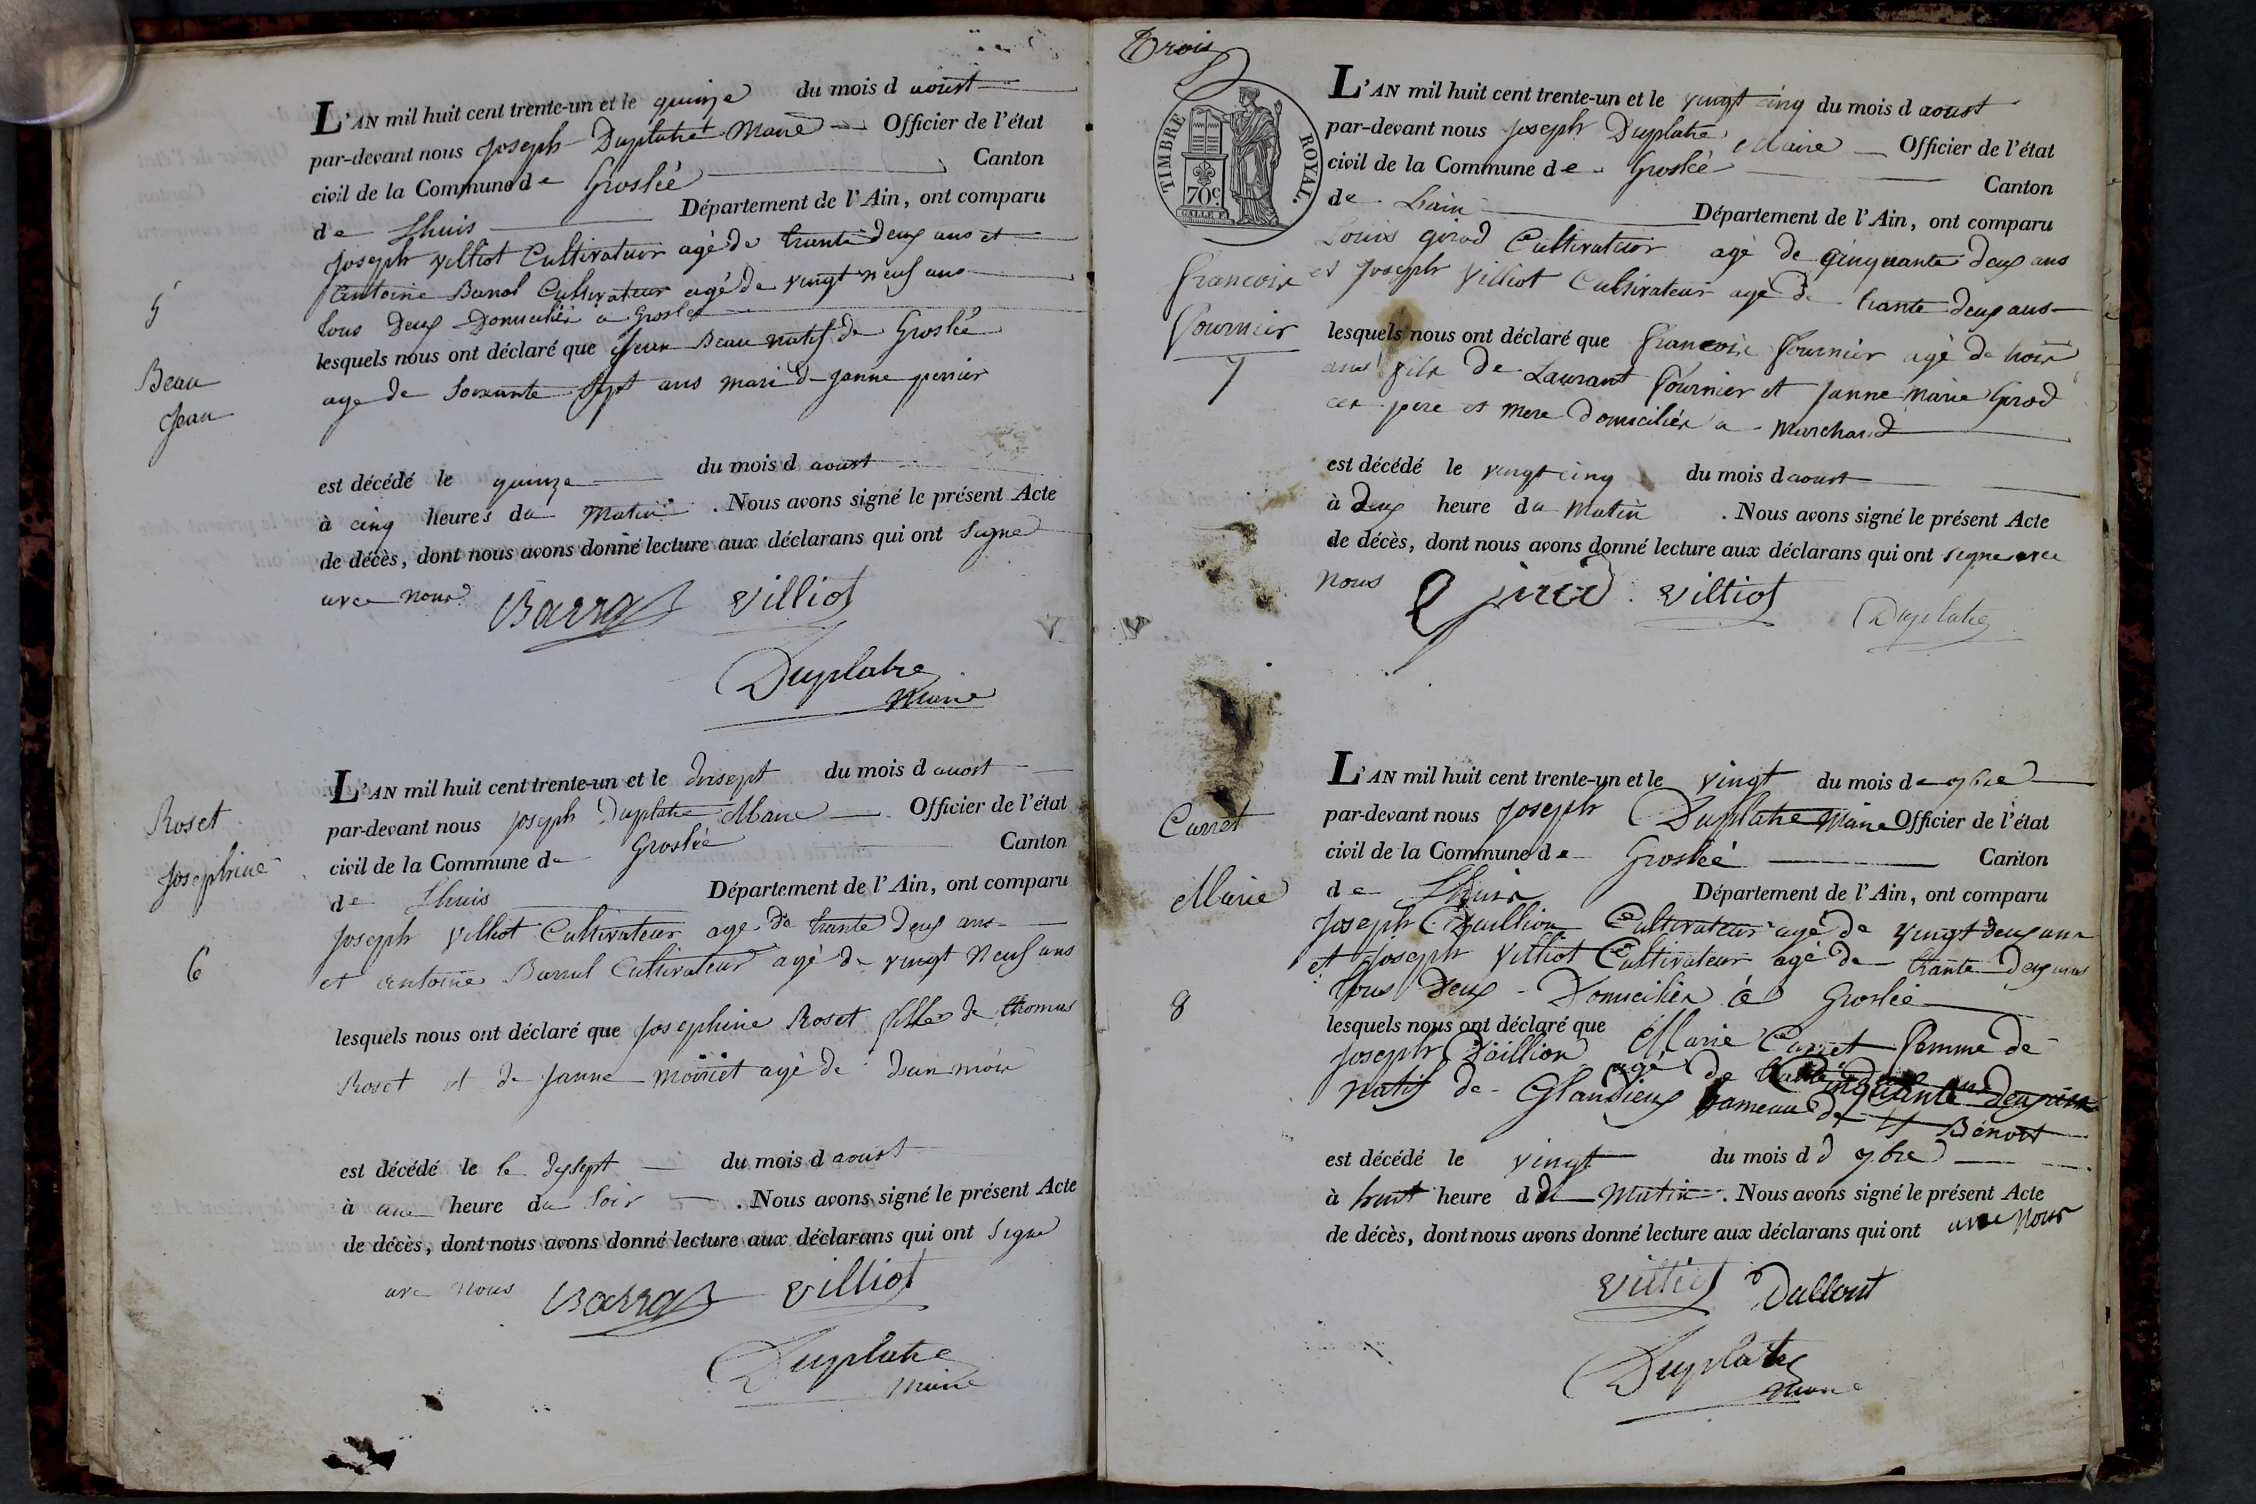 5
Beau
Jean
L'AN mil huit cent trente-un et le quinze du mois d aoust
par-devant nous Joseph Duplatre Maire Officier de l'état
civil de la Commune de Groslée Canton
de Lhuis Département de l'Ain, ont comparu
Joseph Villiot Cultivateur agé de trante deux ans et
Antoine Barral Cultivateur agé de vingt neuf ans
tous deux Domiciliés a Groslée
lesquels nous ont déclaré que Jean Beau natif de Groslée
age de Soixante Sept ans mari d Janne perrier
est décédé le quinze du mois d aoust
à cinq heures du Matin . Nous avons signé le présent Acte
de décès, dont nous avons donné lecture aux déclarans qui ont Signé
avec nous
Barral Villiot
Duplatre
Maire
Roset
Josephine
6
L'AN mil huit cent trente-un et le dixsept du mois d auost
par-devant nous Joseph Duplatre Maire Officier de l'état
civil de la Commune de Groslée Canton
de Lhuis Département de l'Ain, ont comparu
Joseph Villiot Cultivateur age de trante deux ans
et antoine Barral Cultivateur agé de vingt Neuf ans
lesquels nous ont déclaré que Josephine Roset fille de thomas
Roset et de Janne agé de dun mois
est décédé le le dysept du mois d aoust
à une heure du Soir . Nous avons signé le présent Acte
de décès, dont nous avons donné lecture aux déclarans qui ont Signe
avec nous
Barral Villiot
Duplatre
Maire
Trois
TIMBRE ROYAL.
70c.
François
Fournier
7
L'AN mil huit cent trente-un et le vingt cinq du mois d aoust
par-devant nous Joseph Duplatre Maire Officier de l'état
civil de la Commune de Groslée Canton
de Lain Département de l'Ain, ont comparu
Louis girod Cultivateur agé de Cinquante deux ans
et Joseph Villiot Cultivateur agé de trante deux ans
lesquels nous ont déclaré que François fournier agé de trois
ans fils de Laurant fournier et Janne Marie Girod
ces pere et mere domiciliés a Marchand
est décédé le vingt cinq du mois d aoust
à deux heure du Matin . Nous avons signé le présent Acte
de décès, dont nous avons donné lecture aux déclarans qui ont signe avec
nous
Girod Villiot
Duplatre
Carret
Marie
8
L'AN mil huit cent trente-un et le vingt du mois de 7bre
par-devant nous Joseph Duplatre Maire Officier de l'état
civil de la Commune de Groslée Canton
de Lhuis Département de l'Ain, ont comparu
Joseph Cultivateur agé de vingt deux ans
et Joseph Villiot Cultivateur agé de trante deux ans
tous deux Domiciliés à Groslée
lesquels nous ont déclaré que Marie Carret femme de
Joseph agé de Cinquante deux ans
natif de Glandieux hameau de St Benoit
est décédé le vingt du mois d d 7bre
à huit heure d du Matin . Nous avons signé le présent Acte
de décès, dont nous avons donné lecture aux déclarans qui ont avec nous
Villiot
Duplatre
Maire